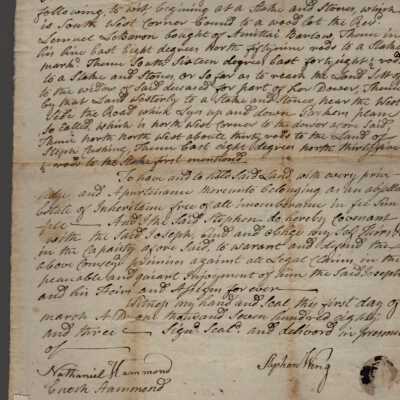 following, to wit, begining at a Stake and Stones, which
is South West Corner bound to a wood lot the Revd
Lemuel LeBaron bought of Amittai Barlow, Thence in
his line East Eight degrees North fifty nine rods to a Stake
markd Thence South Sixteen degrees East forty eight rods
to a Stake and Stones, or So far as to reach the Land Sett of
to the widow of Said deceased for part of her Dower, Thence
by that Land Westerly to a Stake and Stones, near the West
Side the Road which Lyes up and down plain
So Called, which is north west Corner to the dower as on Said,
Thence north north West about thirty rods to the Land of
Steph Cushing, Thence East eight degrees north thirty
rods to the Stake first mentioned
To have and to hold Said Land, with every priv
idge and Apurtenance thereunto belonging as an absolute
Estate of Inheritance free of all incumbrance in fee Sim
ple And I the Said Stephen do hereby Covenant
with the Said Joseph, and oblige my Self
in the Capaity afore Said, to warant and defend the
above premises against all Legal Claims in the
peaceable and quiant Injoyment of him the Said Joseph
and his Heirs and Assigns for ever
Witness my hand and Seal this first day of
march A D one thousand Seven hundred eighty
and three Signd Seald and deliverd in presence
of
Nathaniel Hammond Stephen Wing
Enoch Hammond